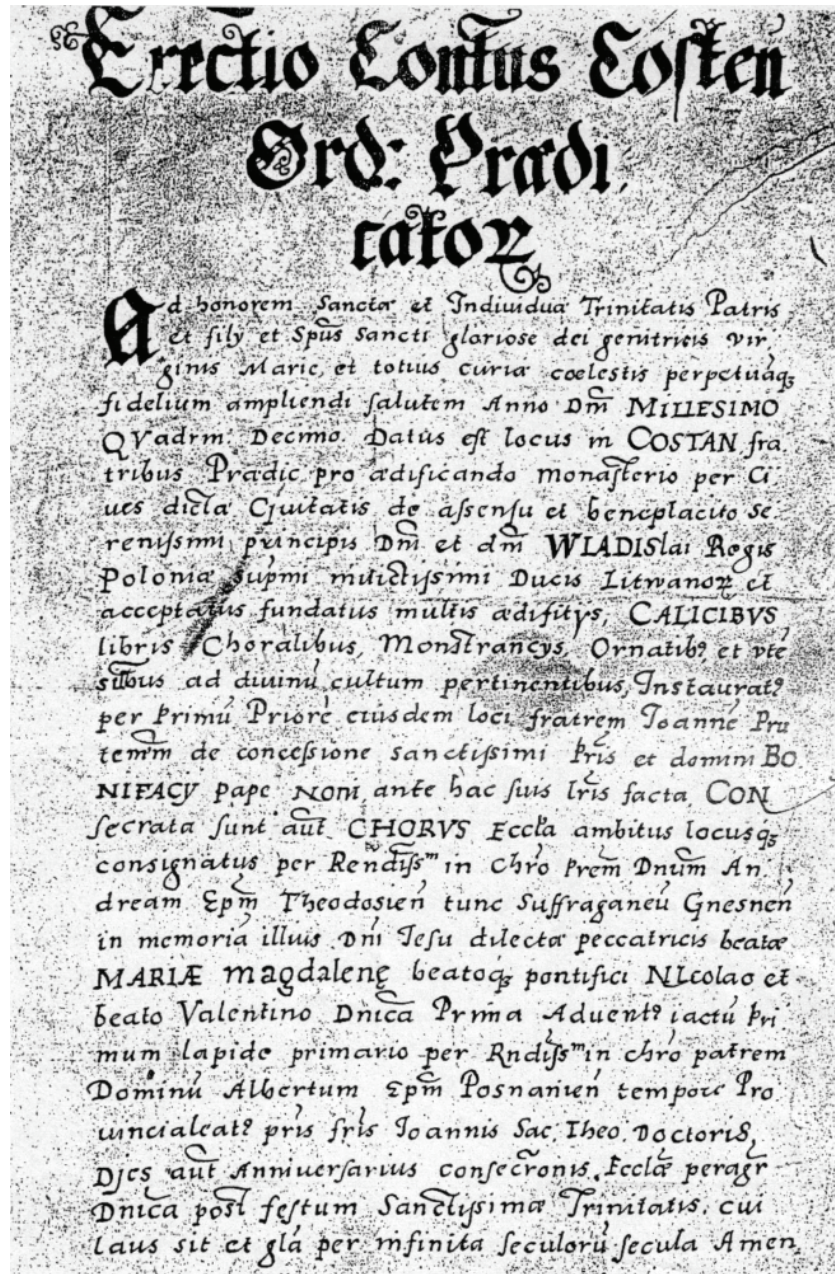 Erectio Contus Costen
Ord: Prædi
catoꝝ
Ad honorem Sanctæ et Indiuiduæ Trinitatis Patris
et filÿ et Spus Sancti gloriose dei genitricis vir,
ginis Marie, et totius curiæ cœlestis perpetuāqꝫ
fidelium ampliendi salutem Anno Dm̄ MILLESIMO
QVadrm: Decimo. Datus est locus in COSTAN fra,
tribus Prædic, pro ædificando monasterio per Ci,
ues dictæ Cjuitatis de assensu et beneplacito Se,
renissimi principis Dm̄ et dm̄ WLADISlai Regis
Poloniæ supmi inuictissimi Ducis Litwanoꝝ et
acceptatus fundatus multis ædifitÿs, CALICIBVS
libris Choralibus, Monstrancÿs, Ornatibꝰ, et vtē
silibus ad diuinū cultum pertinentibus, Instauratꝰ
per Primū Priorē eiusdem loci fratrem Joannē Pru
tenum de concessione sanctissimi Pr̄is et domini BO
NIFACŸ pape NONI, ante hac suis lr̄is facta, CON
secrata sunt aūt CHORVS Eccl̄a ambitus locusqꝫ
consignatus per Rendissᵐ in Chr̄o Prem̄ Dnūm An,
dream Epm̄ Theodosien̄ tunc Suffraganeū Gnesnen̄
in memoriā illius Dn̄i Jesu dilectæ peccatricis beatæ
MARIÆ magdalenę beatoqꝫ pontifici NIcolao et
beato Valentino Dn̄ica Prima Aduentꝰ iactū Pri,
mum lapide primario per Rndissᵐ in chr̄o patrem
Dominū Albertum Epm̄ Posnanien̄ tempore Pro
uincialeatꝰ pr̄is fr̄is Joannis Sac. Theo. DoctoriS,
Djes aūt Anniuersarius consecr̄onis, Eccl̄æ peragr̄
Dn̄ica post festum Sanctissimæ Trinitatis. cui
laus sit et gl̄a per infinita seculorū secula Amen,